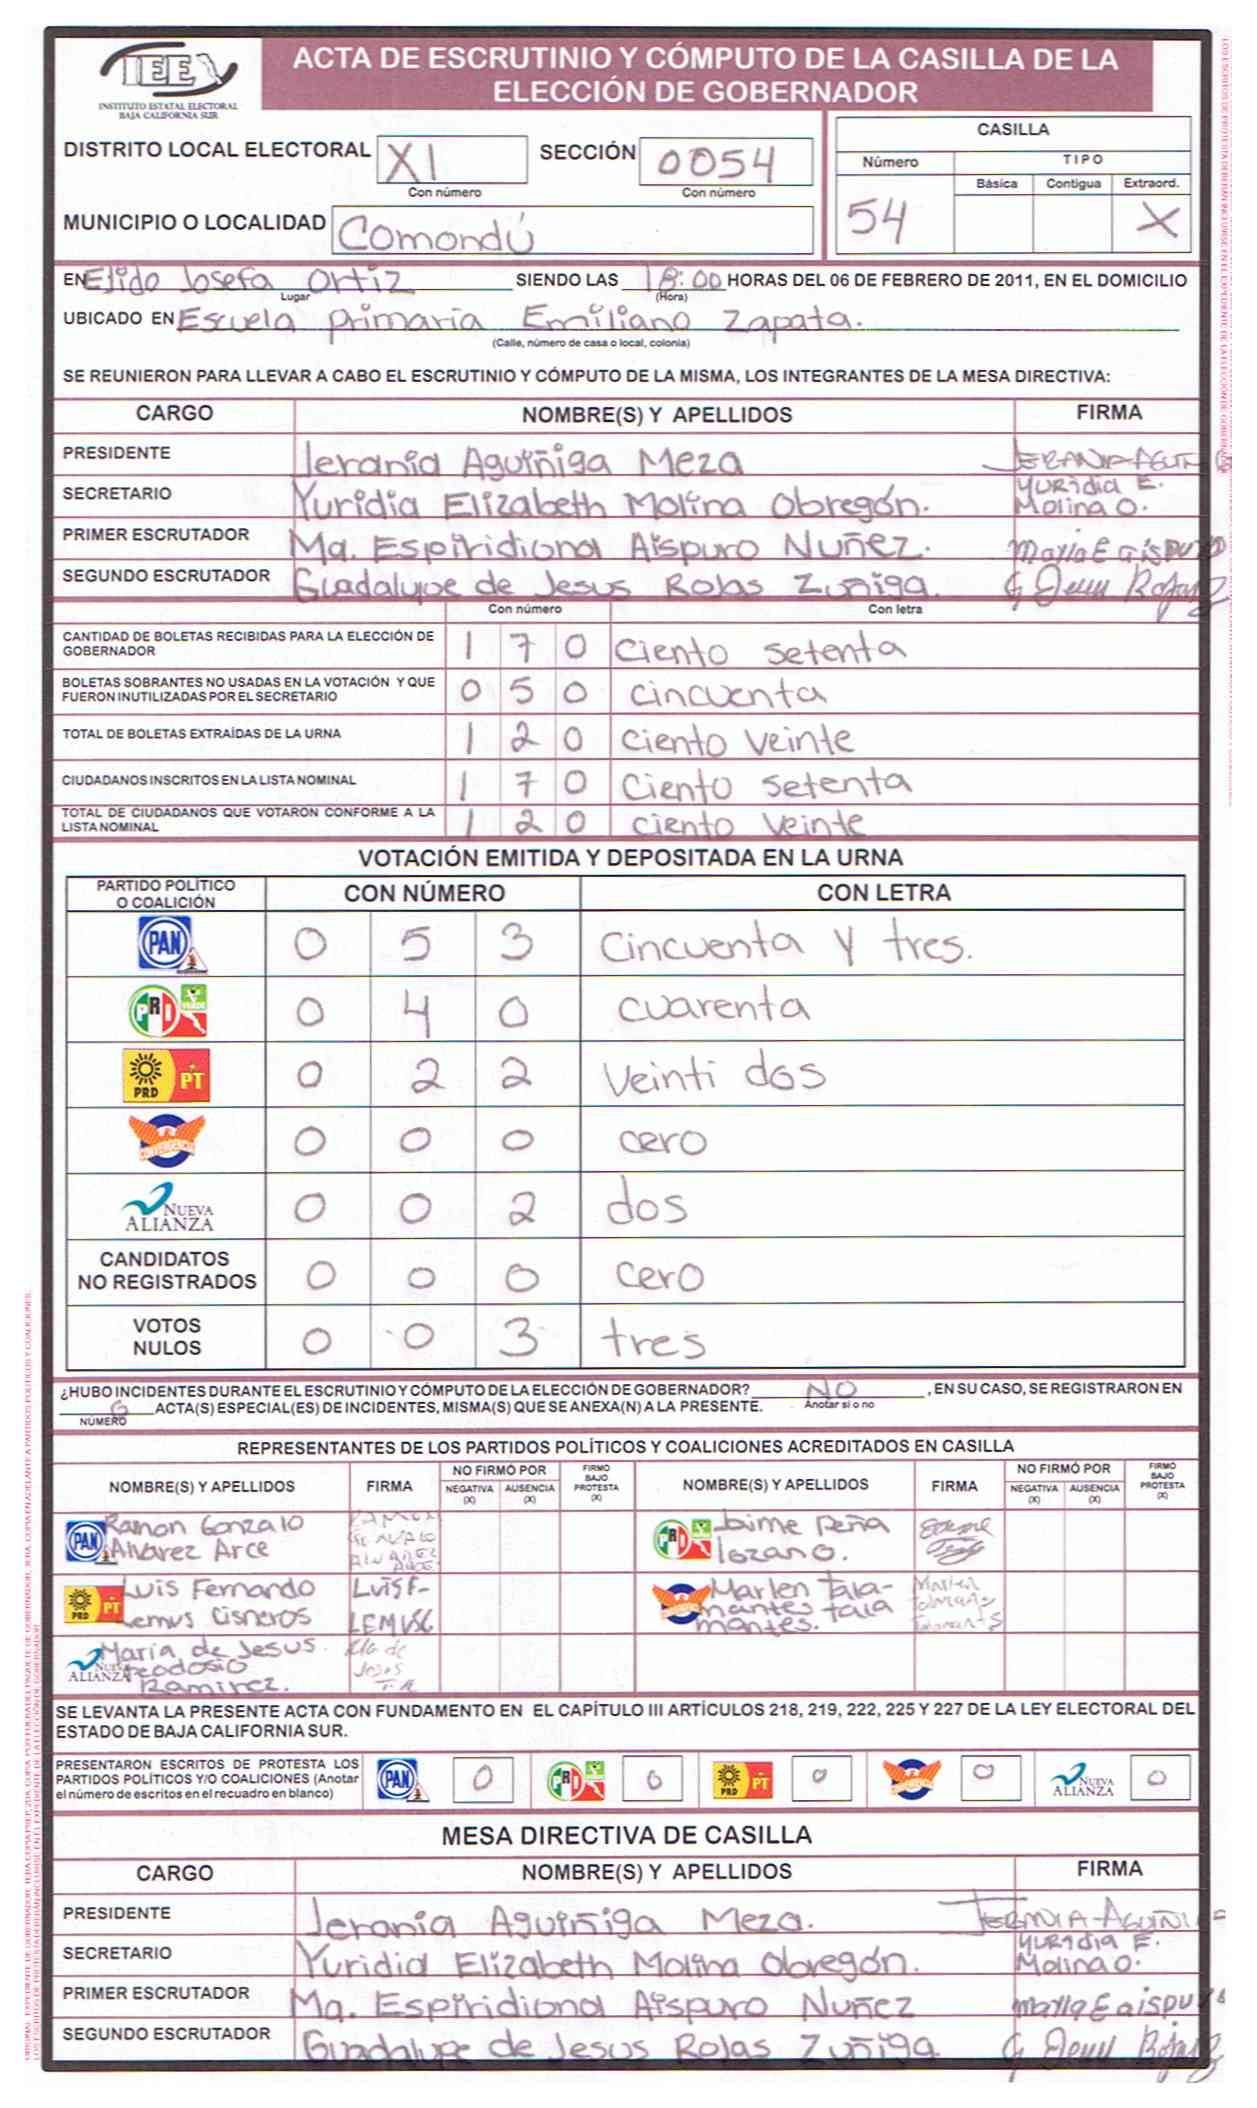 IEEX
INSTITUTO ESTATAL ELECTORAL
BAJA CALIFORNIA SUR
ACTA DE ESCRUTINIO Y CÓMPUTO DE LA CASILLA DE LA
ELECCIÓN DE GOBERNADOR
DISTRITO LOCAL ELECTORAL XI SECCIÓN 0054
Con número Con número
MUNICIPIO O LOCALIDAD Comondú
CASILLA
Número TIPO
Básica Contigua Extraord.
54 X
EN Ejido Josefa Ortiz SIENDO LAS 18:00 HORAS DEL 06 DE FEBRERO DE 2011, EN EL DOMICILIO
Lugar (Hora)
UBICADO EN Escuela primaria Emiliano Zapata.
(Calle, número de casa o local, colonia)
SE REUNIERON PARA LLEVAR A CABO EL ESCRUTINIO Y CÓMPUTO DE LA MISMA, LOS INTEGRANTES DE LA MESA DIRECTIVA:
CARGO NOMBRE(S) Y APELLIDOS FIRMA
PRESIDENTE Jerania Aguiñiga Meza
SECRETARIO Yuridia Elizabeth Molina Obregón. Yuridia E. Molina O.
PRIMER ESCRUTADOR Ma. Espiridiona Aispuro Nuñez. Maria E aispuro
SEGUNDO ESCRUTADOR Guadalupe de Jesus Rojas Zuñiga.
Con número Con letra
CANTIDAD DE BOLETAS RECIBIDAS PARA LA ELECCIÓN DE
GOBERNADOR 1 7 0 ciento setenta
BOLETAS SOBRANTES NO USADAS EN LA VOTACIÓN Y QUE
FUERON INUTILIZADAS POR EL SECRETARIO 0 5 0 cincuenta
TOTAL DE BOLETAS EXTRAÍDAS DE LA URNA 1 2 0 ciento veinte
CIUDADANOS INSCRITOS EN LA LISTA NOMINAL 1 7 0 ciento setenta
TOTAL DE CIUDADANOS QUE VOTARON CONFORME A LA
LISTA NOMINAL 1 2 0 ciento veinte
VOTACIÓN EMITIDA Y DEPOSITADA EN LA URNA
PARTIDO POLÍTICO
O COALICIÓN CON NÚMERO CON LETRA
PAN 0 5 3 Cincuenta y tres.
PRI VERDE 0 4 0 cuarenta
PRD PT 0 2 2 veinti dos
CONVERGENCIA 0 0 0 cero
NUEVA
ALIANZA 0 0 2 dos
CANDIDATOS
NO REGISTRADOS 0 0 0 cero
VOTOS
NULOS 0 0 3 tres
¿HUBO INCIDENTES DURANTE EL ESCRUTINIO Y CÓMPUTO DE LA ELECCIÓN DE GOBERNADOR? NO , EN SU CASO, SE REGISTRARON EN
Anotar si o no
ACTA(S) ESPECIAL(ES) DE INCIDENTES, MISMA(S) QUE SE ANEXA(N) A LA PRESENTE.
NÚMERO
REPRESENTANTES DE LOS PARTIDOS POLÍTICOS Y COALICIONES ACREDITADOS EN CASILLA
NOMBRE(S) Y APELLIDOS FIRMA NO FIRMÓ POR NEGATIVA (X) AUSENCIA (X) FIRMÓ BAJO PROTESTA (X) NOMBRE(S) Y APELLIDOS FIRMA NO FIRMÓ POR NEGATIVA (X) AUSENCIA (X) FIRMÓ BAJO PROTESTA (X)
PAN Ramon Gonzalo
Alvarez Arce
PRI Jaime Peña
lozano.
PRD PT Luis Fernando
Lemus Cisneros
Luis F-
LEMUSC
Marlen Tala-
mantes tala
mantes.
NUEVA ALIANZA María de Jesus
Teodosio
Ramirez.
SE LEVANTA LA PRESENTE ACTA CON FUNDAMENTO EN EL CAPÍTULO III ARTÍCULOS 218, 219, 222, 225 Y 227 DE LA LEY ELECTORAL DEL
ESTADO DE BAJA CALIFORNIA SUR.
PRESENTARON ESCRITOS DE PROTESTA LOS
PARTIDOS POLÍTICOS Y/O COALICIONES (Anotar
el número de escritos en el recuadro en blanco)
PAN 0 PRI 0 PRD PT 0 0 NUEVA ALIANZA 0
MESA DIRECTIVA DE CASILLA
CARGO NOMBRE(S) Y APELLIDOS FIRMA
PRESIDENTE Jerania Aguiñiga Meza.
SECRETARIO Yuridia Elizabeth Molina Obregón. Yuridia E. Molina O.
PRIMER ESCRUTADOR Ma. Espiridiona Aispuro Nuñez Maria E aispuro
SEGUNDO ESCRUTADOR Guadalupe de Jesus Rojas Zuñiga.